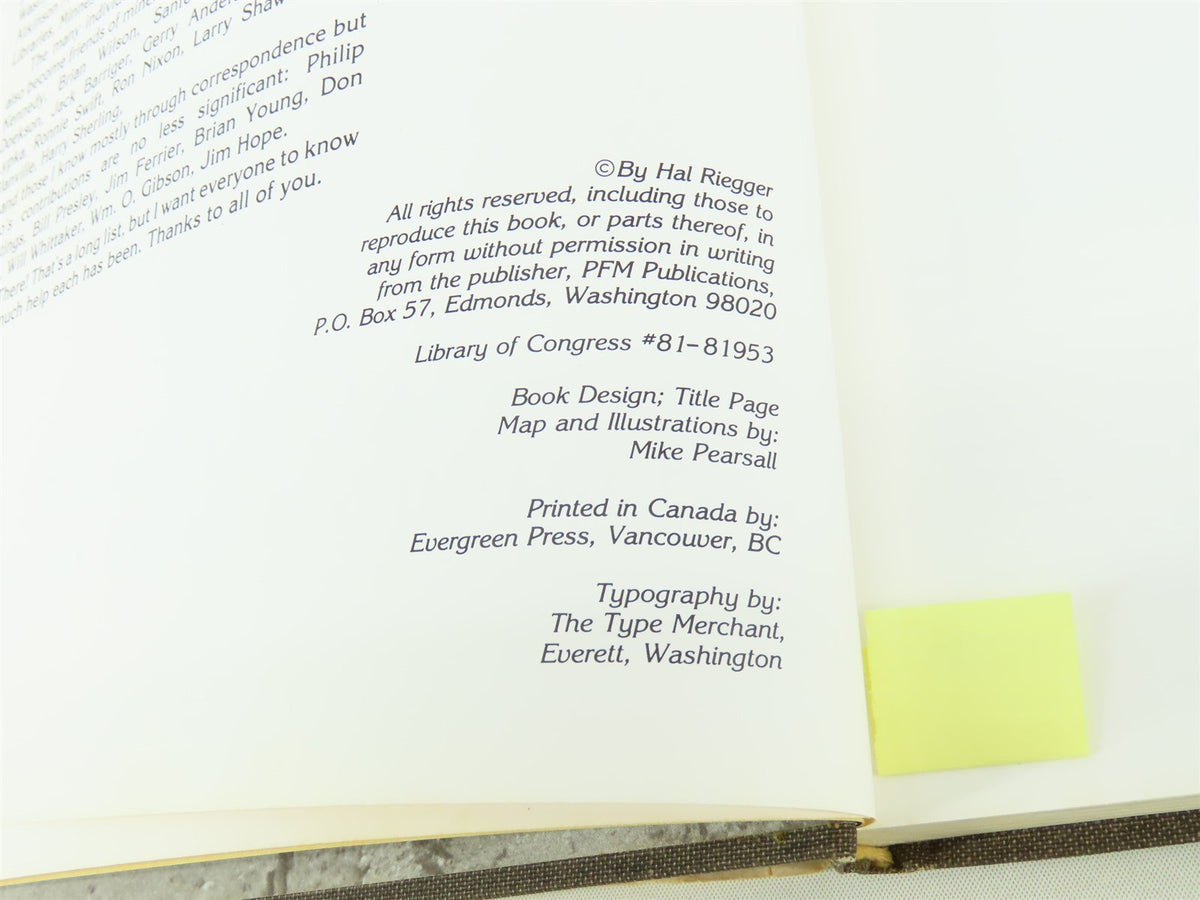 Libraries, Minnes
The many individ
also become friends of mine
Kennedy, Brian Wilson, Sanfo
Jack Barriger, Gerry Anders
Ronnie Swift, Ron Nixon, Larry Shaw
Harry Sherling,
and those I know mostly through correspondence but
contributions are no less significant: Philip
Bill Presley, Jim Ferrier, Brian Young, Don
Will Whittaker, Wm. O. Gibson, Jim Hope.
There! That's a long list, but I want everyone to know
much help each has been. Thanks to all of you.
©By Hal Riegger
All rights reserved, including those to
reproduce this book, or parts thereof, in
any form without permission in writing
from the publisher, PFM Publications,
P.O. Box 57, Edmonds, Washington 98020
Library of Congress #81-81953
Book Design; Title Page
Map and Illustrations by:
Mike Pearsall
Printed in Canada by:
Evergreen Press, Vancouver, BC
Typography by:
The Type Merchant,
Everett, Washington